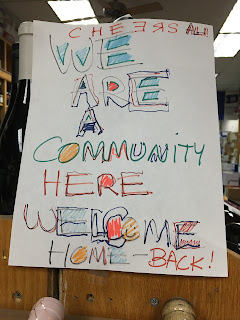 CHEERS ALL
WE
ARE
A
COMMUNITY
HERE
WELCOME
HOME - BACK!